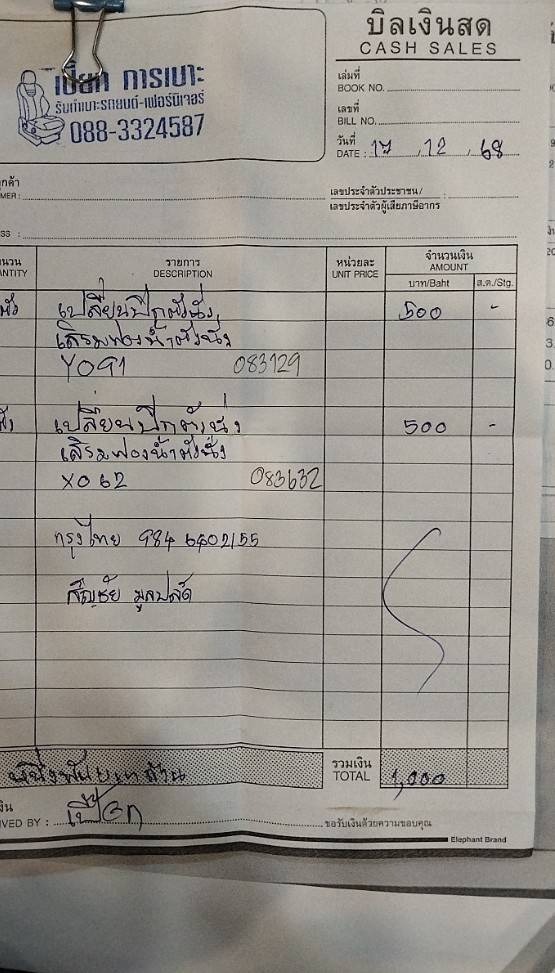 บิลเงินสด
CASH SALES
เปี๊ยก การเบาะ
รับทำเบาะรถยนต์-เฟอร์นิเจอร์
088-3324587
เล่มที่
BOOK NO.
เลขที่
BILL NO.
วันที่
DATE : 17 , 12 , 68
ลูกค้า
MER :
เลขประจำตัวประชาชน/
เลขประจำตัวผู้เสียภาษีอากร
SS :
นวน
ANTITY
รายการ
DESCRIPTION
หน่วยละ
UNIT PRICE
จำนวนเงิน
AMOUNT
บาท/Baht
ส.ต./Stg.
เปลี่ยนปีกตัวนั่ง 500 -
เสริมฟองน้ำตัวนั่ง
YO91 083129
เปลี่ยนปีกตัวนั่ง 500 -
เสริมฟองน้ำตัวนั่ง
XO62 083632
กรุงไทย 984 6402155
สัญชัย มูลปลัด
หนึ่งพันบาทถ้วน
รวมเงิน
TOTAL 1,000
งิน
IVED BY : เปี๊ยก
ขอรับเงินด้วยความขอบคุณ
Elephant Brand